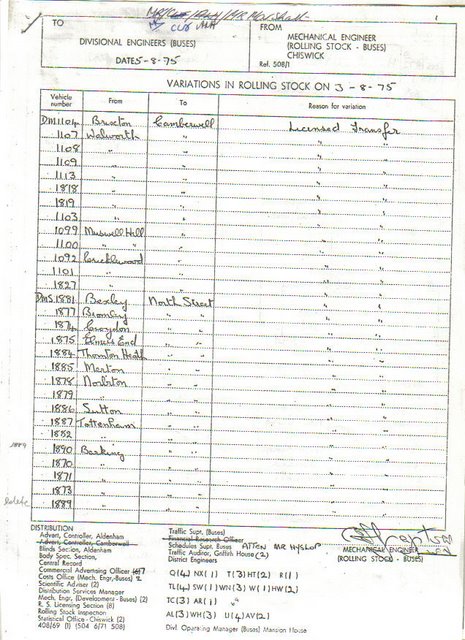 Mr Marshall
CUB
TO
DIVISIONAL ENGINEERS (BUSES)
DATE 5-8-75
FROM
MECHANICAL ENGINEER
(ROLLING STOCK - BUSES)
CHISWICK
Ref. 508/1
VARIATIONS IN ROLLING STOCK ON 3-8-75
Vehicle number From To Reason for variation
DM1104 Brixton Camberwell Licensed Transfer
1107 Walworth " " "
1108 " " " "
1109 " " " "
1113 " " " "
1818 " " " "
1819 " " " "
1103 " " " "
1099 Muswell Hill " " "
1100 " " " " "
1092 Cricklewood " " "
1101 " " " "
1827 " " " "
DMS1881 Bexley North Street " "
1877 Bromley " " " "
1874 Croydon " " " "
1875 Elmers End " " " "
1884 Thornton Heath " " " "
1885 Merton " " " "
1878 Norbiton " " " "
1879 " " " " "
1886 Sutton " " " "
1887 Tottenham " " " "
1882 " " " " "
1889 1890 Barking " " " "
1870 " " " " "
1871 " " " " "
1873 " " " " "
delete 1889 " " " " "
DISTRIBUTION
Advert. Controller, Aldenham
Advert. Controller, Camberwell
Blinds Section, Aldenham
Body Spec. Section,
Central Record
Commercial Advertising Officer
Costs Office (Mech. Engr, Buses) 2
Scientific Adviser (2)
Distribution Services Manager
Mech. Engr. (Development - Buses) (2)
R. S. Licensing Section (8)
Rolling Stock Inspection
Statistical Office - Chiswick (2)
408/69 (1) (504 6/71 508)
Traffic Supt. (Buses)
Financial Research Officer
Schedules Supt. Buses ATTEN MR HYSLOP
Traffic Auditor, Griffith House (2)
District Engineers
Q(4) NX(1) T(3) HT(2) R(1)
TL(4) SW(1) WN(3) W(1) HW(2)
TC(3) AR(1)
AL(3) WH(3) U(4) AV(2)
Divl. Operating Manager (Buses) Mansion House
MECHANICAL ENGINEER
(ROLLING STOCK - BUSES)